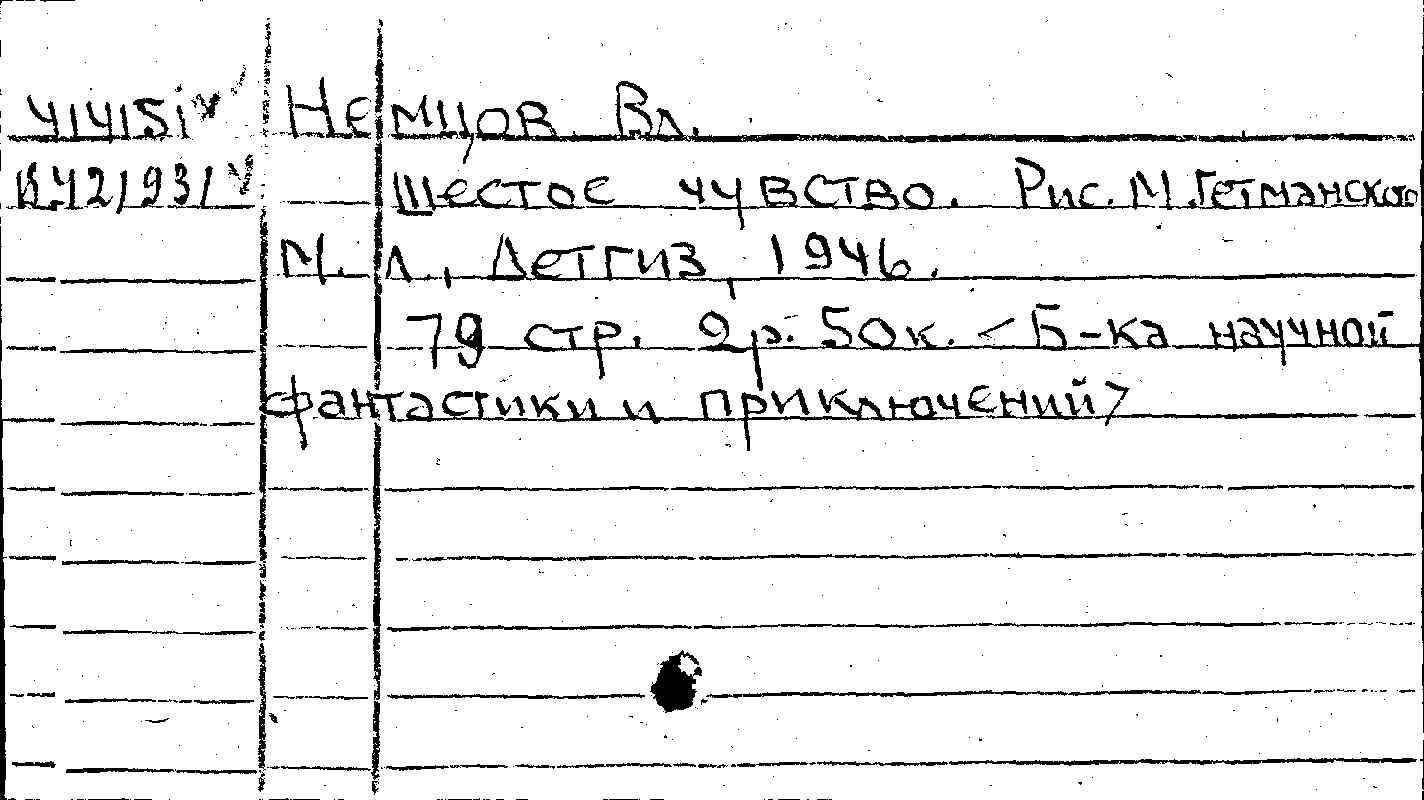 41451 Немцов Вл.
В421931 Шестое чувство. Рис. М.Гетманского
М. Л., Детгиз, 1946.
79 стр. 2р. 50к. <Б-ка научной
фантастики и приключений>